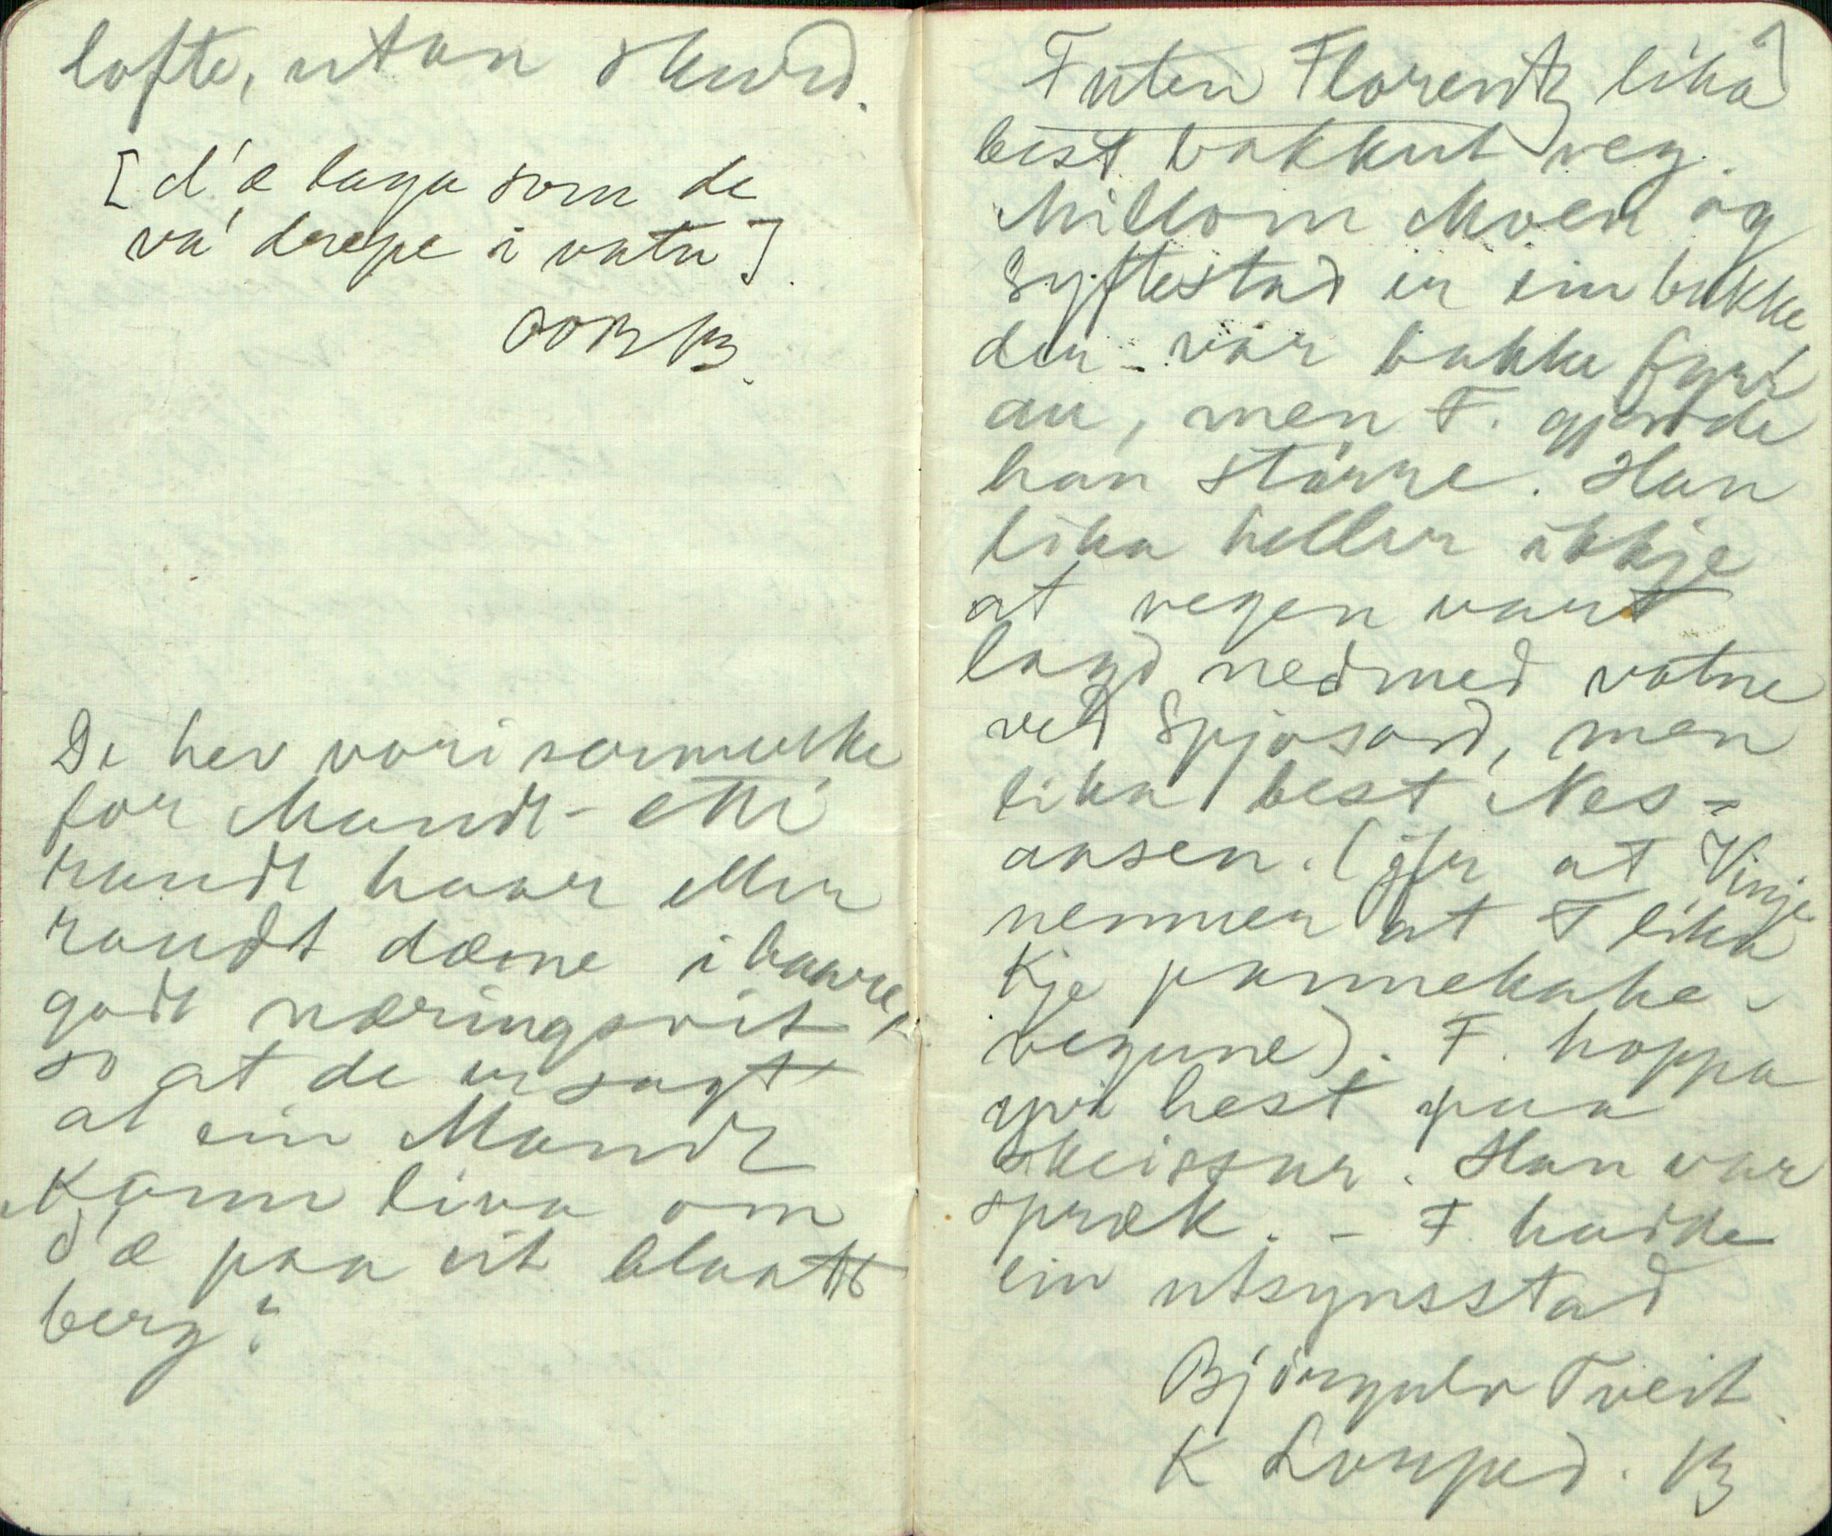 lofte, utan skurd.
[d'æ laga som de
va' drepe i vatn].
OORB
De hev vori sermerke
for Mandt-ætti
raudt haar eller
raudt dæme i haare,
godt næringsvit
so at de er sagt
at ein Mandt
kann liva om
d'æ paa eit blaatt
berg!
Futen Florentz lika
best bakkut veg.
Millom Moen og
Syftestad er ein bakke
der var bakke fyri
au, men F. gjorde
han større. Han
lika heller ikkje
at vegen vart
lagd nedmed vatne
ved Spjosod, men
lika best Nes-
aasen. (jfr at Vinje
nemner at F lika
kje pannekake-
vegune). F. hoppa
yvi hest paa
skeissur. Han var
spræk. – F. hadde
ein utsynsstad
Bjørgulv Tveit.
K Lonped. B